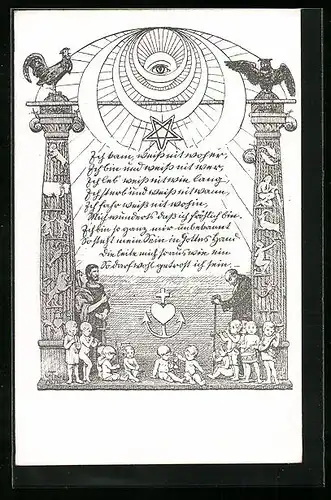 Ich kam, weiß nit woher,
Ich bin und weiß nit wer,
Ich leb, weiß nit wie lang,
Ich sterb und weiß nit wann,
Ich fahr, weiß nit wohin,
Mich wunderts daß ich fröhlich bin.
Ich bin so ganz mir unbekannt
So steht mein Sein in Gottes Hand
Die leite mich so aus wie ein
So darf wohl getrost ich sein.